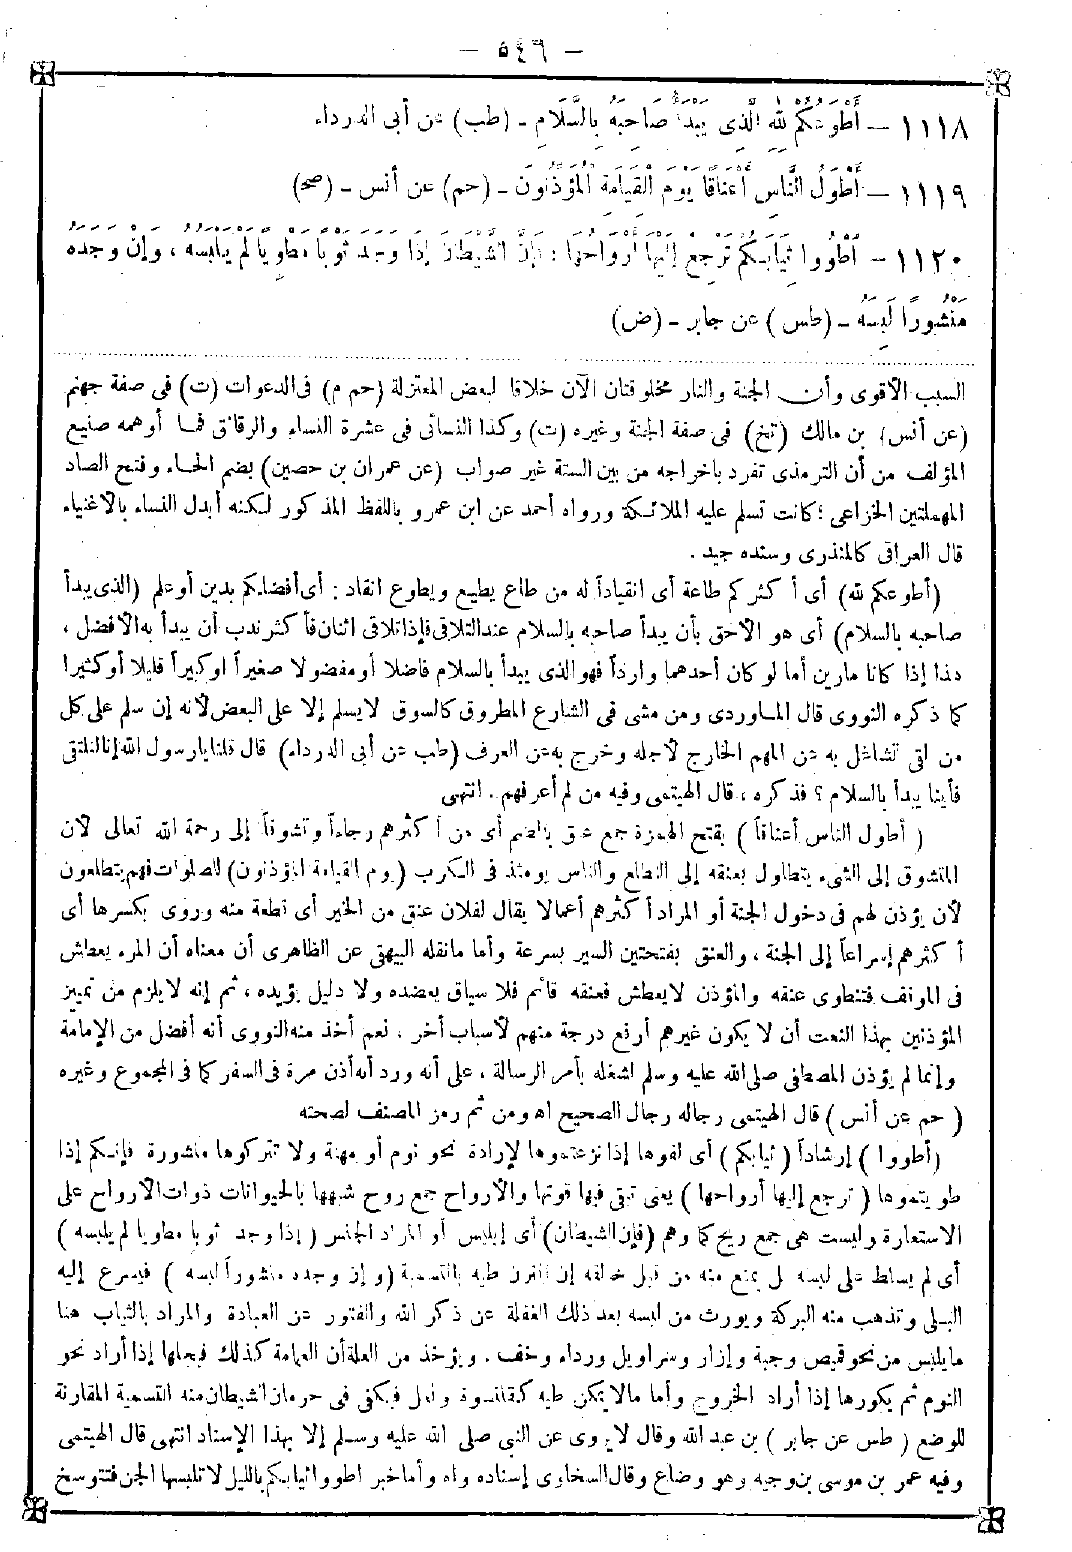 – ٥٤٦ –
١١١٨ – أَطْوَعُكُمْ لِلهِ الَّذِي يَبْدَأُ صَاحِبَهُ بِالسَّلَامِ – (طب) عن أبى الدرداء
١١١٩ – أَطْوَلُ النَّاسِ أَعْنَاقًا يَوْمَ الْقِيَامَةِ الْمُؤَذِّنُونَ – (حم) عن أنس – (صح)
١١٢٠ – أَطْوُوا ثِيَابَكُمْ تَرْجِعْ إِلَيْهَا أَرْوَاحُهَا : فَإِنَّ الشَّيْطَانَ إِذَا وَجَدَ ثَوْبًا مَطْوِيًّا لَمْ يَلْبَسْهُ ، وَإِنْ وَجَدَهُ
مَنْشُورًا لَبِسَهُ – (طس) عن جابر – (ض)
السبب الأقوى وأن الجنة والنار مخلوقتان الآن خلافا لبعض المعتزلة (حم م) فى الدعوات (ت) فى صفة جهنم
(عن أنس) بن مالك (تخ) فى صفة الجنة وغيره (ت) وكذا النسائى فى عشرة النساء والرقائق فما أوهمه صنيع
المؤلف من أن الترمذى تفرد بإخراجه من بين الستة غير صواب (عن عمران بن حصين) بضم الحاء وفتح الصاد
المهملتين الخزاعى ؛ كانت تسلم عليه الملائكة ورواه أحمد عن ابن عمرو باللفظ المذكور لكنه أبدل النساء بالأغنياء
قال العراقى كالمنذرى وسنده جيد .
(أطوعكم لله) أى أكثركم طاعة أى انقياداً له من طاع يطيع ويطوع انقاد : أى أفضلكم بدين أو علم (الذى يبدأ
صاحبه بالسلام) أى هو الأحق بأن يبدأ صاحبه بالسلام عند التلاقى فإذا تلاقى اثنان فأكثر ندب أن يبدأ به الأفضل ،
هذا إذا كانا مارين أما لو كان أحدهما وارداً فهو الذى يبدأ بالسلام فاضلا أو مفضولا صغيراً أو كبيراً قليلا أو كثيرا
كما ذكره النووى قال الماوردى ومن مشى فى الشارع المطروق كالسوق لا يسلم إلا على البعض لأنه إن سلم على كل
من لقى تشاغل به عن المهم الخارج لأجله وخرج به عن العرف (طب عن أبى الدرداء) قال قلنا يا رسول الله إنا نلتقى
فأينا يبدأ بالسلام ؟ فذكره ، قال الهيتمى وفيه من لم أعرفهم . انتهى
( أطول الناس أعناقاً ) بفتح الهمزة جمع عنق بالضم أى من أكثرهم رجاءاً وتشوقاً إلى رحمة الله تعالى لأن
المتشوق إلى الشىء يتطاول بعنقه إلى التطلع والناس يومئذ فى الكرب (يوم القيامة المؤذنون) للصلوات فهم يتطلعون
لأن يؤذن لهم فى دخول الجنة أو المراد أكثرهم أعمالا يقال لفلان عنق من الخير أى قطعة منه وروى بكسرها أى
أكثرهم إسراعاً إلى الجنة ، والعنق بفتحتين السير بسرعة وأما ما نقله البيهقى عن الظاهرى أن معناه أن المرء يعطش
فى الموقف فتنطوى عنقه والمؤذن لا يعطش فعنقه قائم فلا سياق يعضده ولا دليل يؤيده ، ثم إنه لا يلزم من تمييز
المؤذنين بهذا النعت أن لا يكون غيرهم أرفع درجة منهم لأسباب أخر ، نعم أخذ منه النووى أنه أفضل من الإمامة
وإنما لم يؤذن المصطفى صلى الله عليه وسلم لشغله بأمر الرسالة ، على أنه ورد أنه أذن مرة فى السفر كما فى المجموع وغيره
( حم عن أنس ) قال الهيتمى رجاله رجال الصحيح اه ومن ثم رمز المصنف لصحته
(أطووا ) إرشاداً ( ثيابكم ) أى لفوها إذا نزعتموها لإرادة نحو نوم أو مهنة ولا تتركوها منشورة فإنكم إذا
طويتموها ( ترجع إليها أرواحها ) يعنى تبقى فيها قوتها والأرواح جمع روح شبهها بالحيوانات ذوات الأرواح على
الاستعارة وليست هى جمع ريح كما وهم (فإن الشيطان) أى إبليس أو المراد الجنس ( إذا وجد ثوبا مطويا لم يلبسه )
أى لم يسلط على لبسه بل يمنع منه من قبل خالقه إن اقترن طيه بالتسمية (وإن وجده منشوراً لبسه ) فيسرع إليه
البلى وتذهب منه البركة ويورث من لبسه بعد ذلك الغفلة عن ذكر الله والفتور عن العبادة والمراد بالثياب هنا
ما يلبس من نحو قميص وجبة وإزار وسراويل ورداء وخف . ويؤخذ من العلة أن العمامة كذلك فيحلها إذا أراد نحو
النوم ثم يكورها إذا أراد الخروج وأما ما لا يمكن طيه كقلنسوة ونعل فيكفى فى حرمان الشيطان منه التسمية المقارنة
للوضع ( طس عن جابر ) بن عبد الله وقال لا يروى عن النبى صلى الله عليه وسلم إلا بهذا الإسناد انتهى قال الهيتمى
وفيه عمر بن موسى بن وجيه وهو وضاع وقال السخاوى إسناده واه وأما خبر اطووا ثيابكم بالليل لا تلبسها الجن فتتوسخ